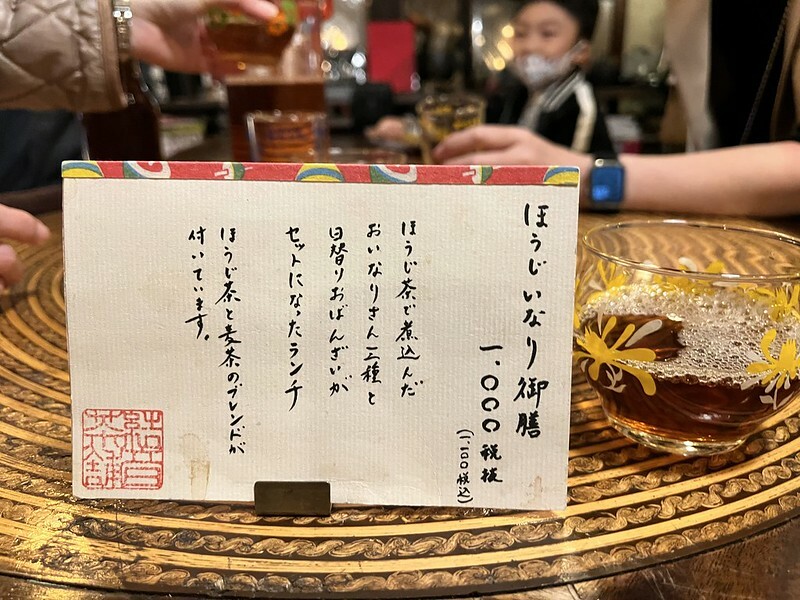 ほうじいなり御膳
一、〇〇〇税抜
(1,100税込)
ほうじ茶で煮込んだ
おいなりさん三種と
日替りおばんざいが
セットになったランチ
ほうじ茶と麦茶のブレンドが
付いています。